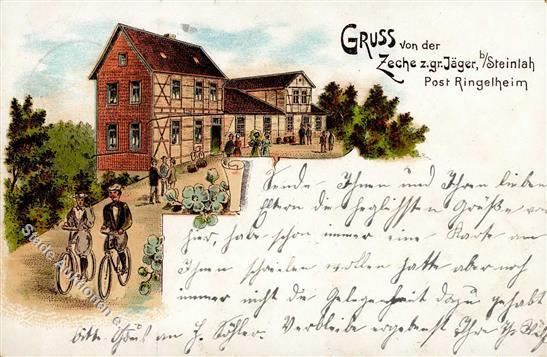 GRUSS von der
Zeche z.gr. Jäger, b/Steinlah
Post Ringelheim
Sende Ihnen und Ihren lieben
Eltern die herzlichsten Grüße von
hier, habe schon immer eine Karte an
Ihnen schreiben wollen hatte aber noch
immer nicht die Gelegenheit dazu gehabt
bitte Gruß an H. Köhler. Verbleibe ergebenst Ihr